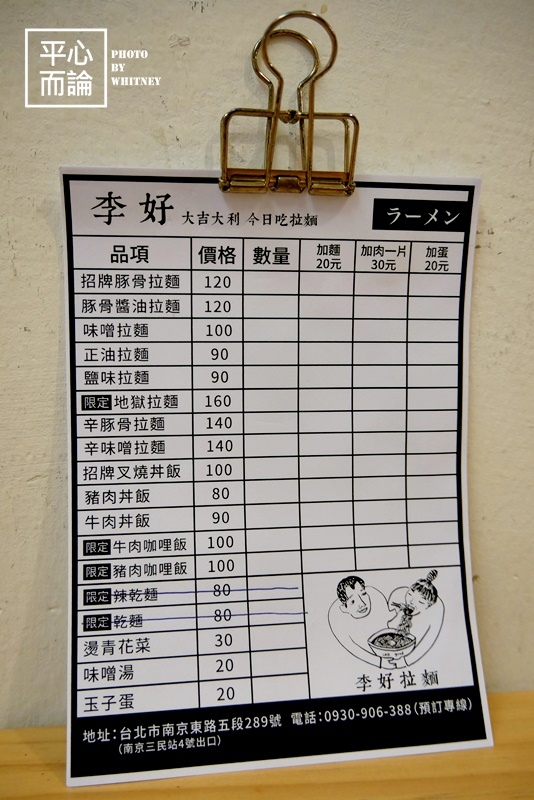 平心
而論
PHOTO
BY
WHITNEY
李好 大吉大利 今日吃拉麵 ラーメン
品項 價格 數量 加麵 20元 加肉一片 30元 加蛋 20元
招牌豚骨拉麵 120
豚骨醬油拉麵 120
味噌拉麵 100
正油拉麵 90
鹽味拉麵 90
限定 地獄拉麵 160
辛豚骨拉麵 140
辛味噌拉麵 140
招牌叉燒丼飯 100
豬肉丼飯 80
牛肉丼飯 90
限定 牛肉咖哩飯 100
限定 豬肉咖哩飯 100
限定 辣乾麵 80
限定 乾麵 80
燙青花菜 30
味噌湯 20
玉子蛋 20
李好拉麵
地址:台北市南京東路五段289號 電話:0930-906-388(預訂專線)
(南京三民站4號出口)